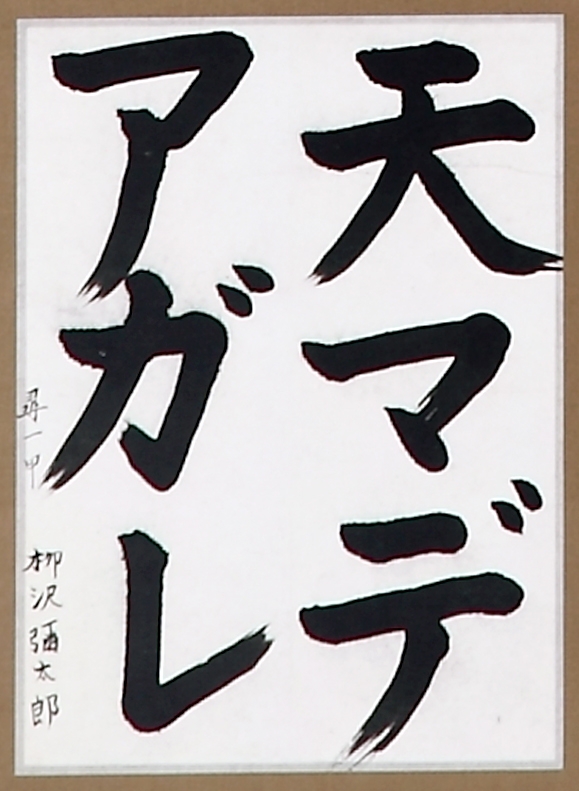 天マデ
アガレ
尋一甲
柳沢彌太郎